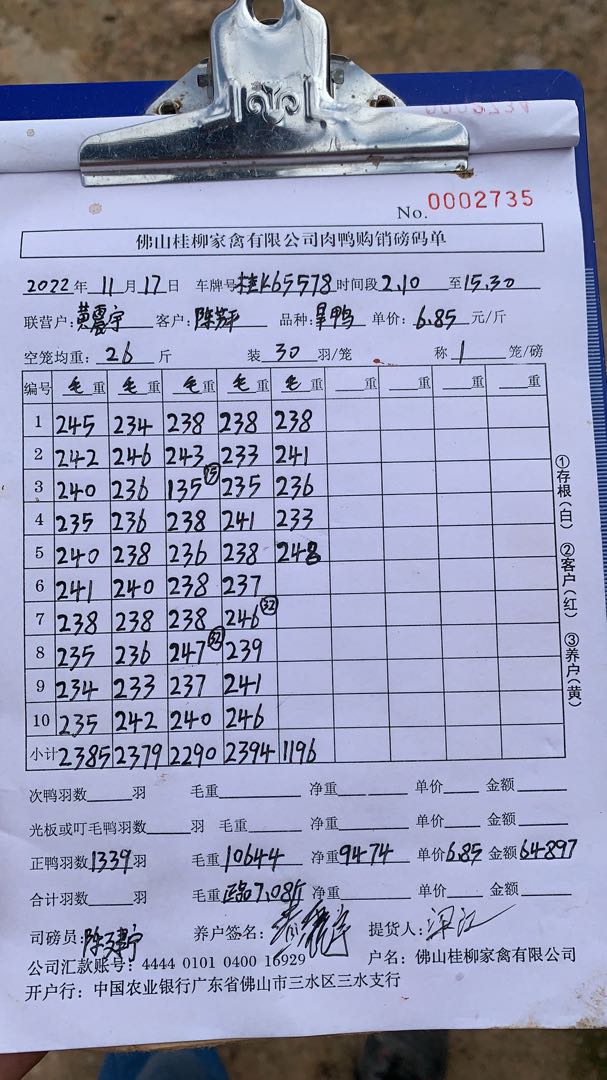 No. 0002735
佛山桂柳家禽有限公司肉鸭购销磅码单
2022年 11月 17日 车牌号 桂K65578 时间段 2.10 至 15.30
联营户: 黄震宇 客户: 陈芳平 品种: 旱鸭 单价: 6.85 元/斤
空笼均重: 26 斤 装 30 羽/笼 称 1 笼/磅
编号 毛重 毛重 毛重 毛重 毛重 重 重 重 重
1 245 234 238 238 238
2 242 246 243 233 241
3 240 236 135 (15) 235 236
4 235 236 238 241 233
5 240 238 236 238 248
6 241 240 238 237
7 238 238 238 246 (32)
8 235 236 247 (32) 239
9 234 233 237 241
10 235 242 240 246
小计 2385 2379 2290 2394 1196
次鸭羽数 羽 毛重 净重 单价 金额
光板或叮毛鸭羽数 羽 毛重 净重 单价 金额
正鸭羽数 1339 羽 毛重 10644 净重 9474 单价 6.85 金额 64897
合计羽数 羽 毛重 净重 单价 金额
7.08斤
司磅员: 养户签名: 提货人: 梁江
公司汇款账号: 4444 0101 0400 16929 户名: 佛山桂柳家禽有限公司
开户行: 中国农业银行广东省佛山市三水区三水支行
①存根(白) ②客户(红) ③养户(黄)